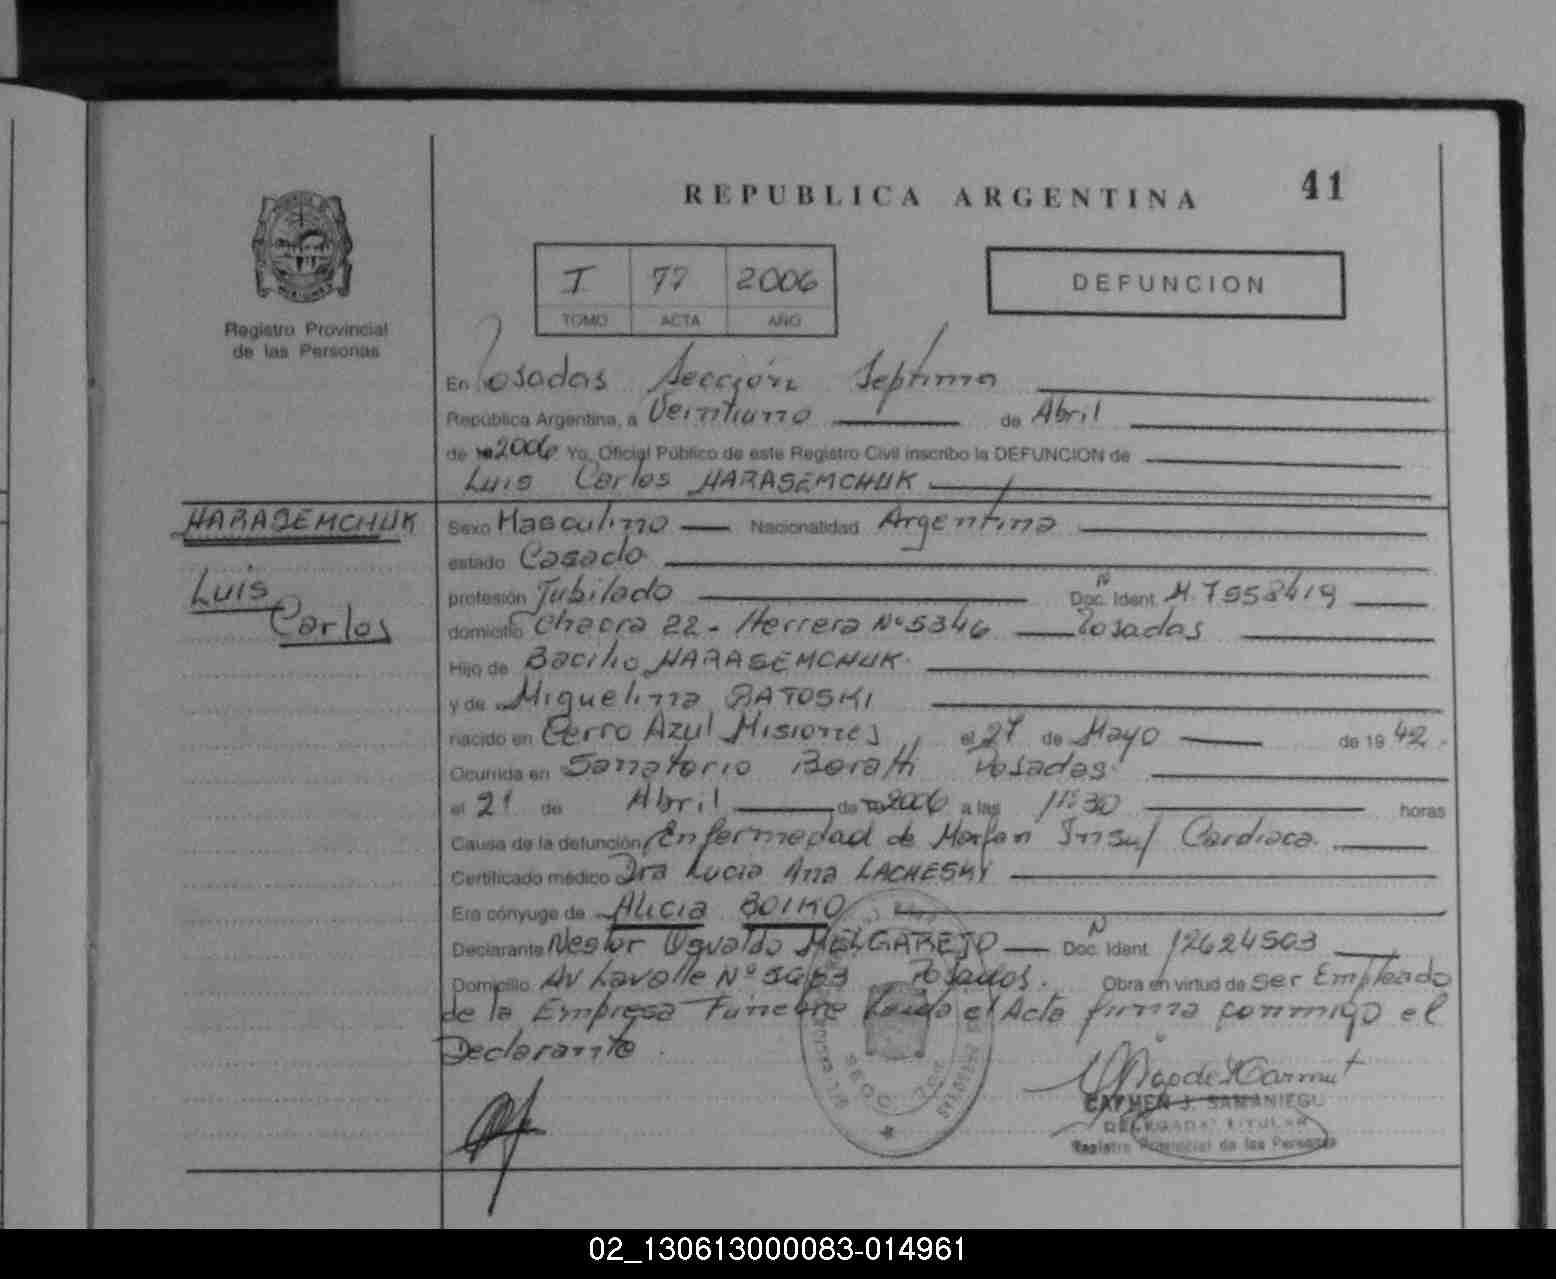 REPUBLICA ARGENTINA
41
Registro Provincial
de las Personas
I 77 2006
TOMO ACTA AÑO
DEFUNCION
En Posadas Sección Septima
República Argentina, a Veintiuno de Abril
de 2006 Yo, Oficial Público de este Registro Civil inscribo la DEFUNCION de
Luis Carlos HARASEMCHUK
HARASEMCHUK
Luis
Carlos
Sexo Masculino Nacionalidad Argentina
estado Casado
profesión Jubilado Doc. Ident. M. 7558419
domicilio Chacra 22 - Herrera Nº 5346 Posadas
Hijo de Bacilio HARASEMCHUK
y de Miguelina BATOSKI
nacido en Cerro Azul Misiones el 27 de Mayo de 1942.
Ocurrida en Sanatorio Boratti Posadas
el 21 de Abril de 2006 a las 11:30 horas
Causa de la defunción Enfermedad de Morfan Insuf Cardiaca.
Certificado médico Dra Lucia Ana LACHESKI
Era cónyuge de Alicia BOIKO
Declarante Nestor Osvaldo MELGAREJO Doc. Ident. N 12624503
Domicilio Av Lavalle Nº Posadas. Obra en virtud de ser Empleado
de la Empresa Funebre Leida el Acta firma conmigo el
Declarante.
SECC. 7
CARMEN J. SAMANIEGO
DELEGADA TITULAR
Registro Provincial de las Personas
02_130613000083-014961